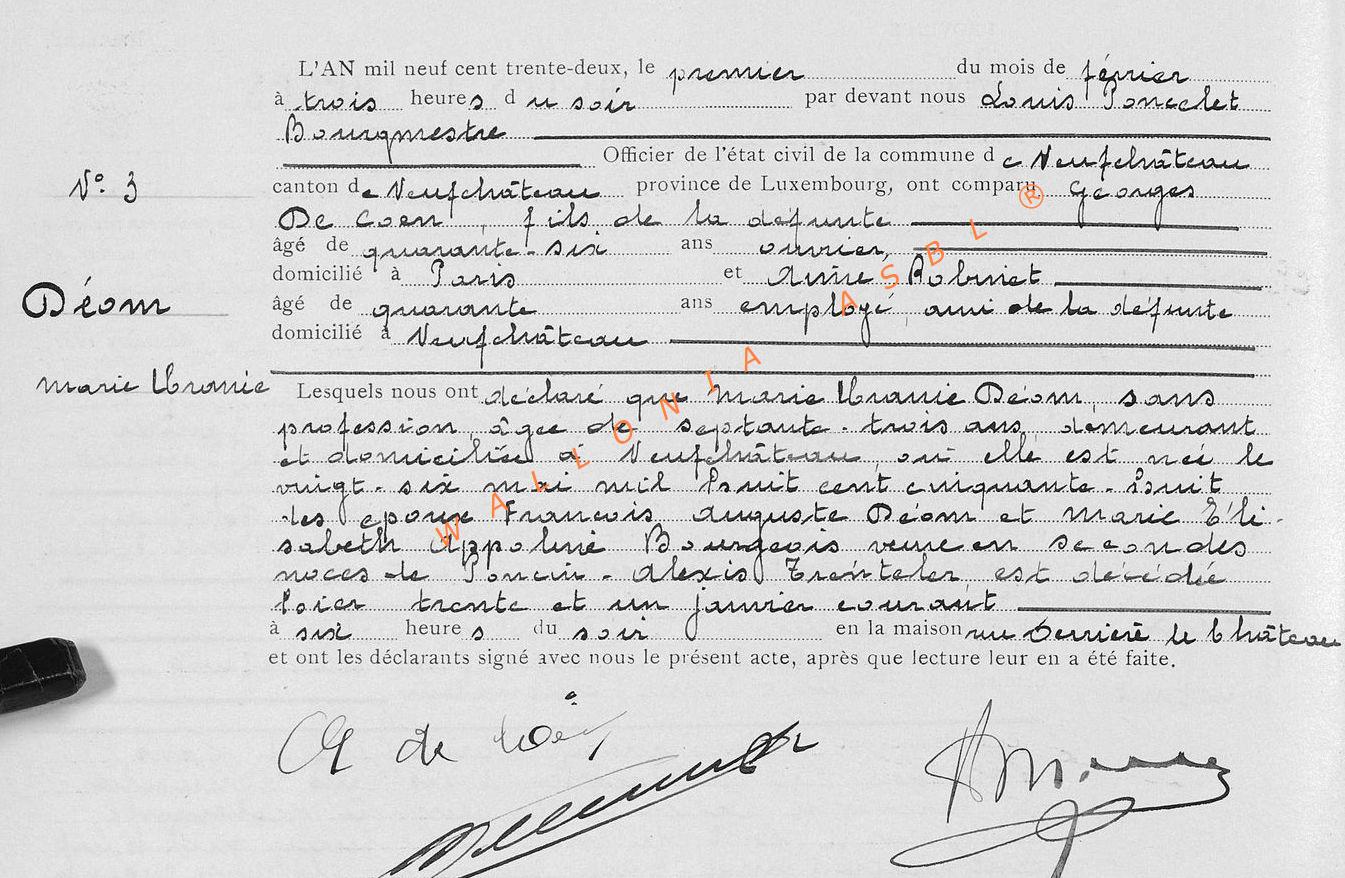 L'AN mil neuf cent trente-deux, le premier du mois de février
à trois heures du soir par devant nous Louis Poncelet
Bourgmestre
Officier de l'état civil de la commune de Neufchâteau
N° 3
canton de Neufchâteau province de Luxembourg, ont comparu Georges
De Coen, fils de la défunte
âgé de quarante-six ans ouvrier,
domicilié à Paris et Robinet
Déom
âgé de quarante ans employé, ami de la défunte
domicilié à Neufchâteau
Marie Uranie
Lesquels nous ont déclaré que Marie Uranie Déom, sans
profession, âgée de septante-trois ans, demeurant
et domiciliée à Neufchâteau, où elle est née le
vingt-six mai mil huit cent cinquante-huit
des époux François Auguste Déom et Marie Eli-
sabeth Appoline Bourgeois veuve en secondes
noces de Poncin-Alexis Trenteler, est décédée
hier trente et un janvier courant
à six heures du soir en la maison rue Derrière le Château
et ont les déclarants signé avec nous le présent acte, après que lecture leur en a été faite.
WALLONIA ASBL ®